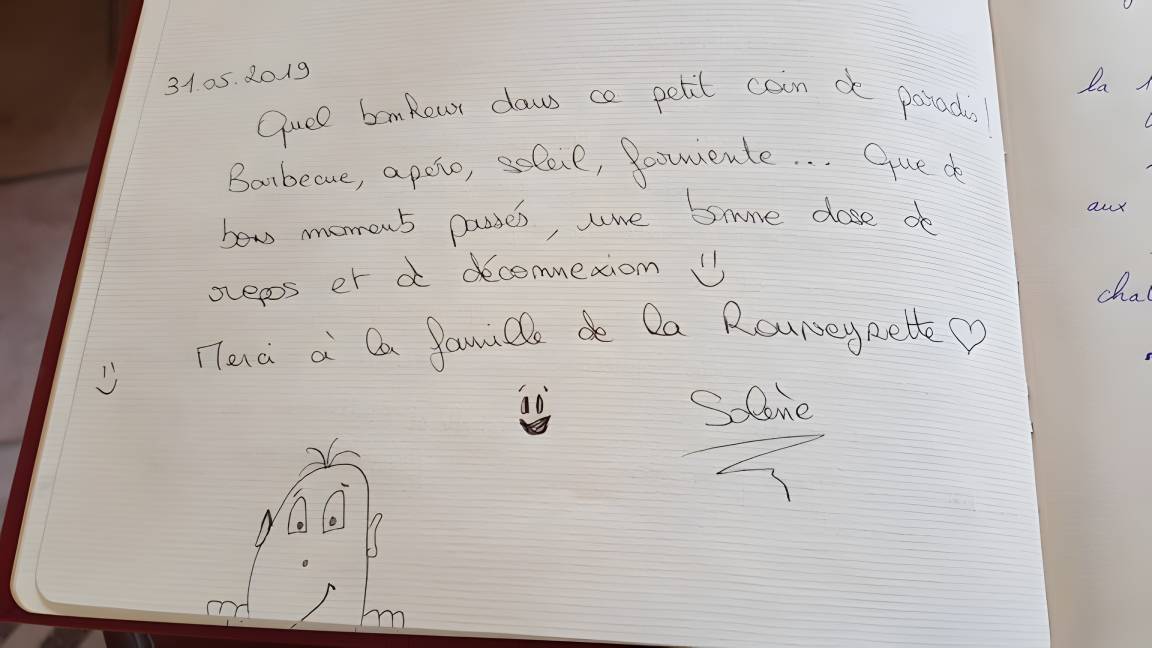 31.05.2019
Quel bonheur dans ce petit coin de paradis!
Barbecue, apéro, soleil, farniente... Que de
bons moments passés, une bonne dose de
repos et de déconnexion
Merci à la famille de la Rouveyrette ♡
Solène
la
aux